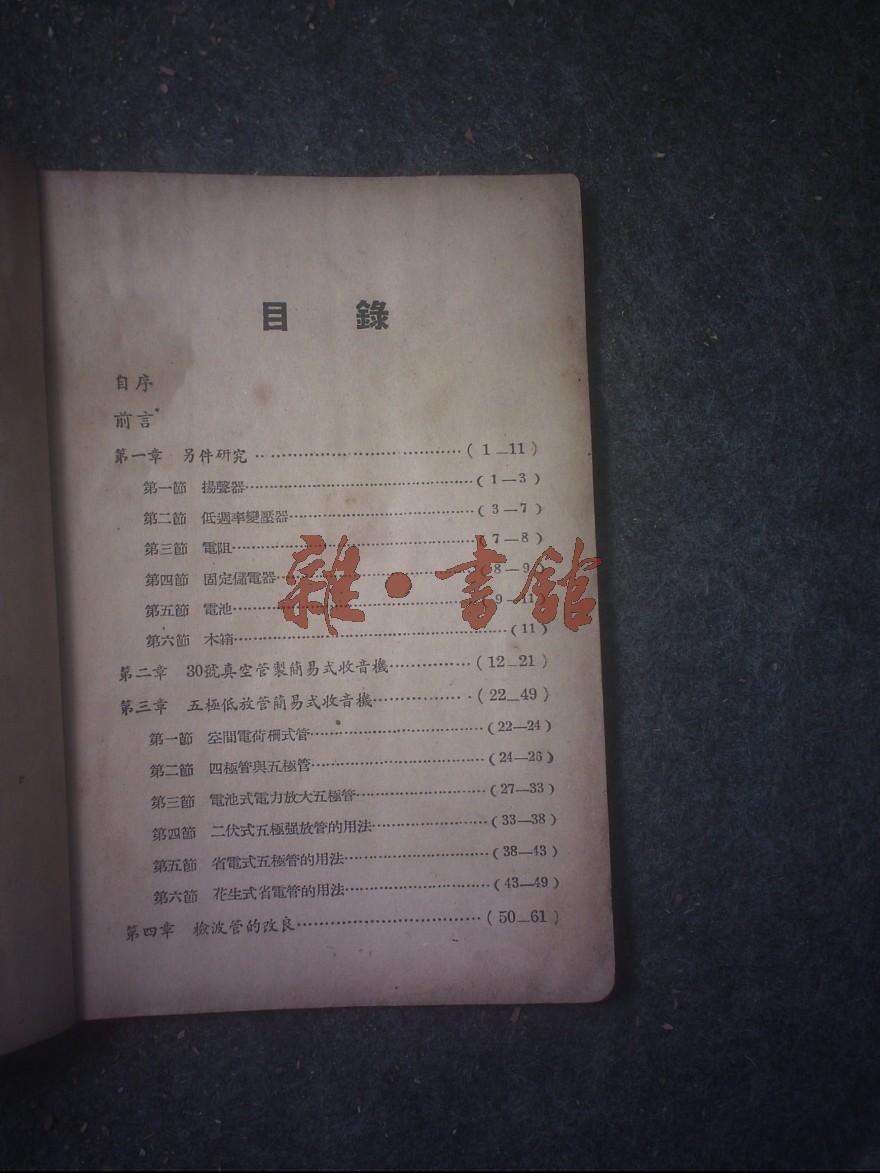 目錄
自序
前言
第一章 另件研究……………………………(1—11)
第一節 揚聲器……………………………(1—3)
第二節 低週率變壓器……………………(3—7)
第三節 電阻………………………………(7—8)
第四節 固定儲電器………………………(8—9)
第五節 電池………………………………(9—11)
第六節 木箱………………………………(11)
第二章 30號真空管製簡易式收音機…………(12—21)
第三章 五極低放管簡易式收音機……………(22—49)
第一節 空間電荷柵式管…………………(22—24)
第二節 四極管與五極管…………………(24—26)
第三節 電池式電力放大五極管…………(27—33)
第四節 二伏式五極强放管的用法………(33—38)
第五節 省電式五極管的用法……………(38—43)
第六節 花生式省電管的用法……………(43—49)
第四章 檢波管的改良…………………………(50—61)
雜·書館